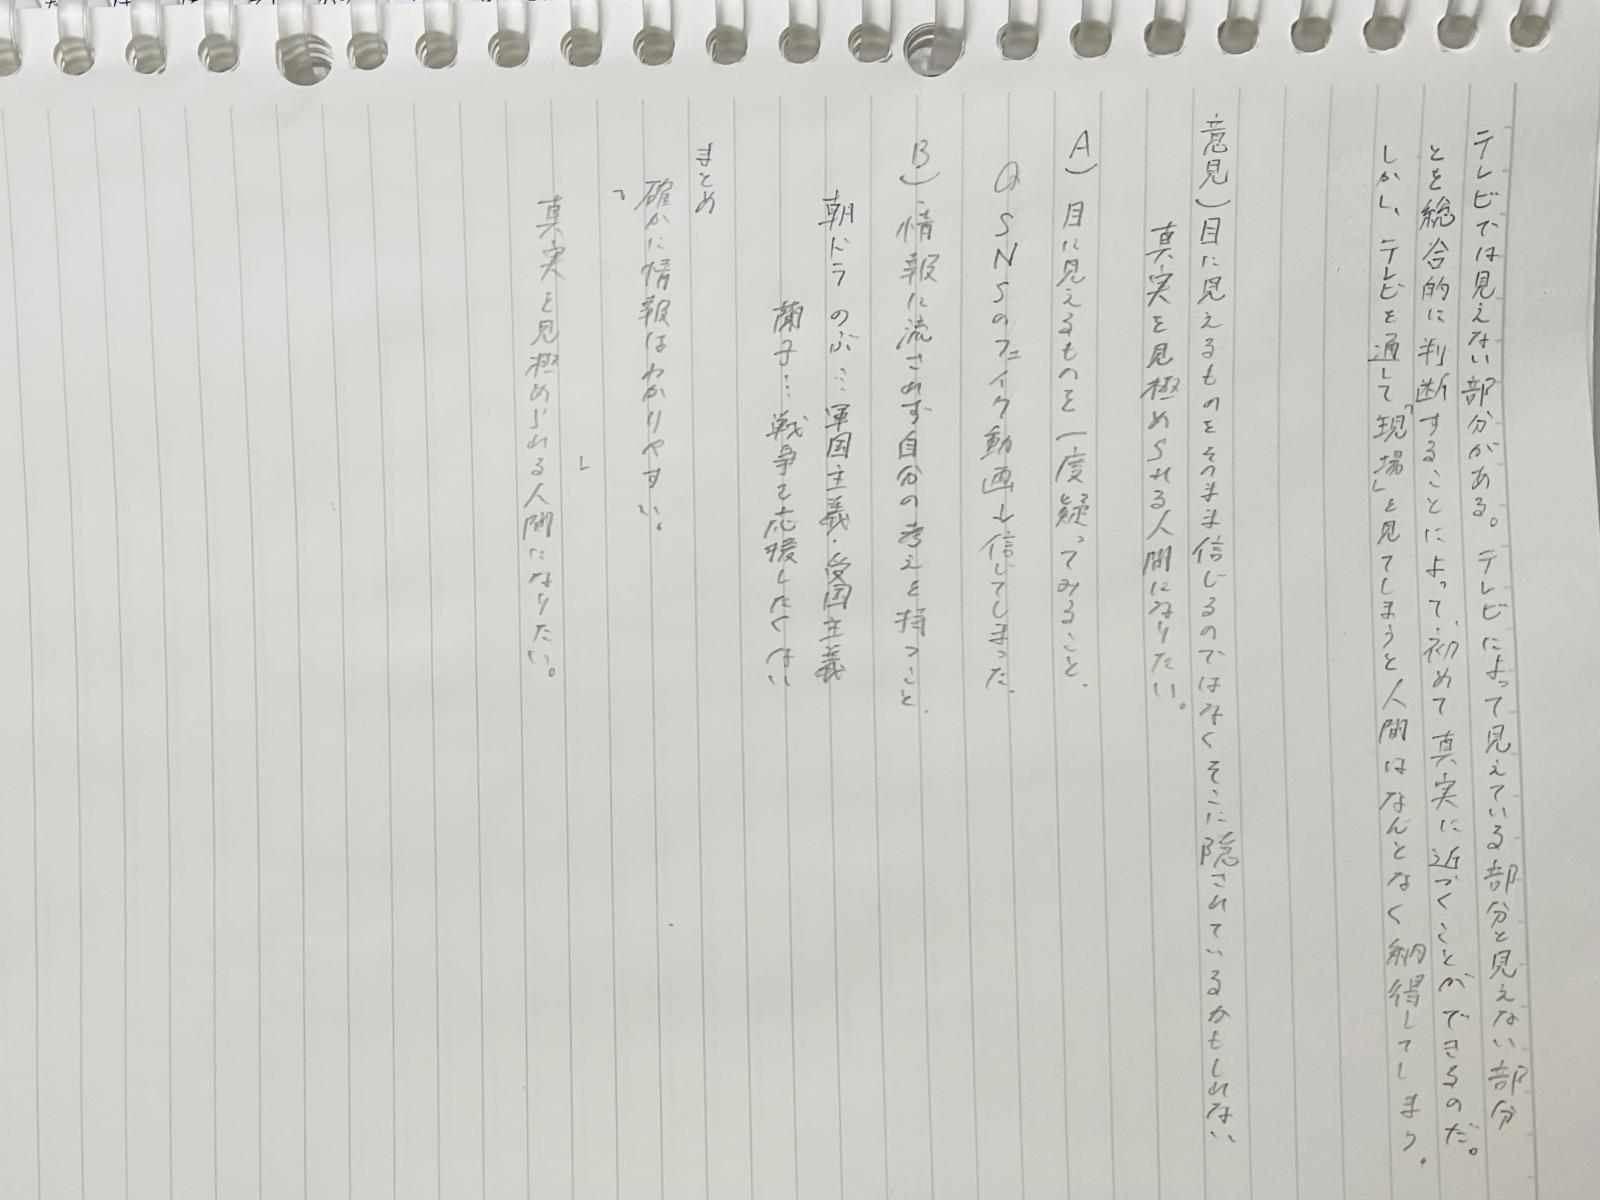 テレビでは見えない部分がある。テレビによって見えている部分と見えない部分
とを総合的に判断することによって、初めて真実に近づくことができるのだ。
しかし、テレビを通して「現場」を見てしまうと人間はなんとなく納得してしまう.
意見)目に見えるものをそのまま信じるのではなくそこに隠されているかもしれない
真実を見極められる人間になりたい。
A) 目に見えるものを一度疑ってみること.
SNSのフェイク動画→信じてしまった.
B) 情報に流されず自分の考えを持つこと.
朝ドラ のぶ…軍国主義・愛国主義
蘭子…戦争で応援したくない
まとめ
確かに情報はわかりやすい。
「 」
真実を見極められる人間になりたい。